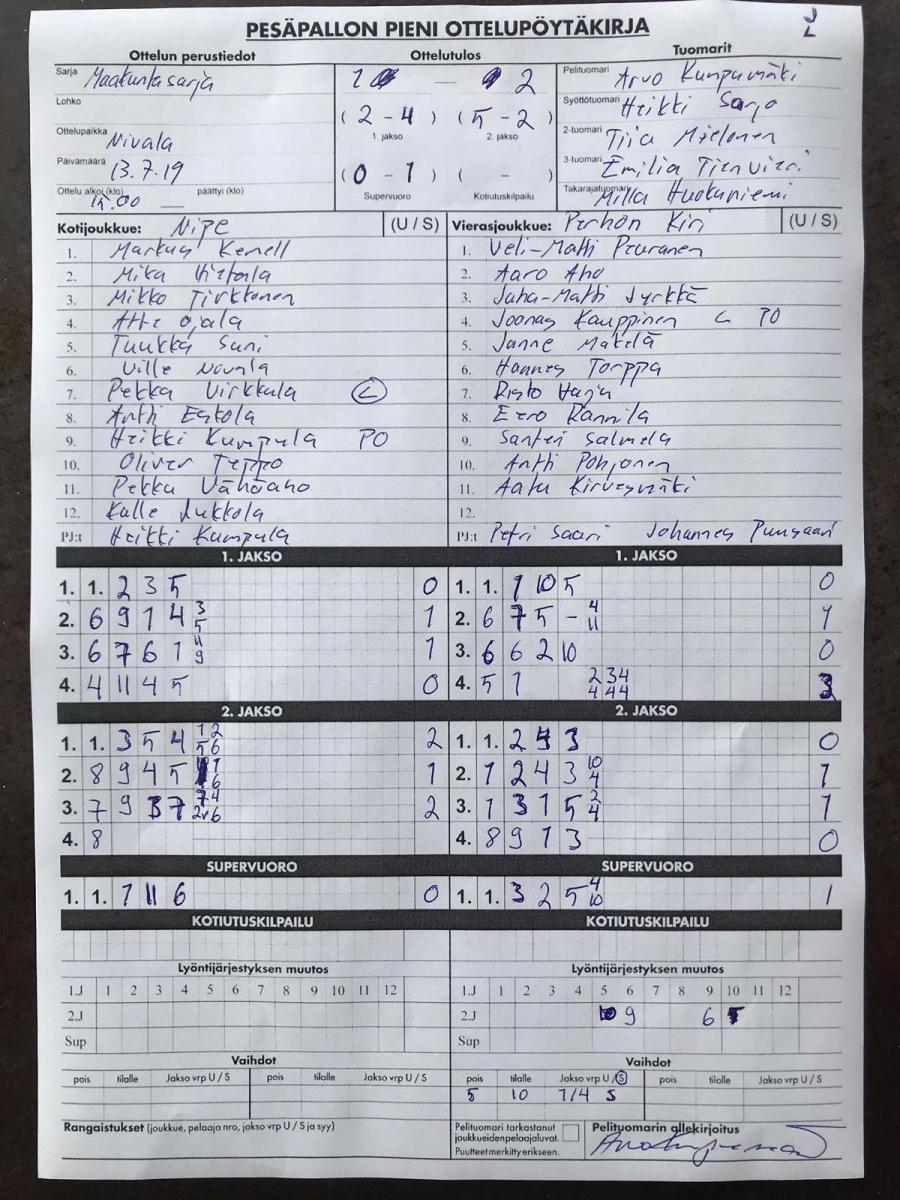 PESÄPALLON PIENI OTTELUPÖYTÄKIRJA
Ottelun perustiedot
Ottelutulos
Tuomarit
Sarja Maakuntasarja
Lohko
Ottelupaikka Nivala
Päivämäärä 13.7.19
Ottelu alkoi (klo) päättyi (klo)
1 — 2
(2 - 4) (5 - 2)
1. jakso 2. jakso
(0 - 1) ( - )
Supervuoro Kotiutuskilpailu
Pelituomari Arvo Kumpumäki
Syöttötuomari Heikki Sarja
2-tuomari Tiia Mielonen
3-tuomari Emilia
Takarajatuomari Milla Huokuniemi
Kotijoukkue: Nipe (U / S)
1. Markus Kenell
2. Mika
3. Mikko Tirkkonen
4. Atte Ojala
5. Tuukka Suni
6. Ville Nivala
7. Pekka Virkkula C
8. Antti Eskola
9. Heikki Kumpula PO
10. Oliver Teppo
11. Pekka Vähäaho
12. Kalle Jukkola
PJ:t Heikki Kumpula
Vierasjoukkue: Perhon Kiri (U / S)
1. Veli-Matti Peuranen
2. Aaro Aho
3. Juha-Matti Jyrkkä
4. Joonas Kauppinen C PO
5. Janne Mäkelä
6. Hannes Torppa
7. Risto Harju
8. Eero Rannila
9. Santeri Salmela
10. Antti Pohjonen
11. Aatu Kirvesmäki
12.
PJ:t Petri Saari Johannes Puusaari
1. JAKSO
1. 1. 2 3 5 0
2. 6 9 1 4 3 5 1
3. 6 7 6 1 11 9 1
4. 4 11 4 5 0
1. JAKSO
1. 1. 1 10 5 0
2. 6 7 5 - 4 11 1
3. 6 6 2 10 0
4. 5 1 2 3 4 4 4 4 3
2. JAKSO
1. 1. 3 5 4 1 2 5 6 2
2. 8 9 4 5 1 6 1
3. 7 9 3 7 7 4 2v6 2
4. 8
2. JAKSO
1. 1. 2 4 3 0
2. 1 2 4 3 10 4 1
3. 1 3 1 5 2 4 1
4. 8 9 1 3 0
SUPERVUORO
1. 1. 7 11 6 0
SUPERVUORO
1. 1. 3 2 5 4 10 1
KOTIUTUSKILPAILU
KOTIUTUSKILPAILU
Lyöntijärjestyksen muutos
1.J 1 2 3 4 5 6 7 8 9 10 11 12
2.J
Sup
Lyöntijärjestyksen muutos
1.J 1 2 3 4 5 6 7 8 9 10 11 12
2.J 9 6
Sup
Vaihdot
pois tilalle Jakso vrp U / S pois tilalle Jakso vrp U / S
Vaihdot
pois tilalle Jakso vrp U / S pois tilalle Jakso vrp U / S
5 10 1/4 S
Rangaistukset (joukkue, pelaaja nro, jakso vrp U / S ja syy)
Pelituomari tarkastanut
joukkueidenpelaajaluvat.
Puutteet merkitty erikseen.
Pelituomarin allekirjoitus